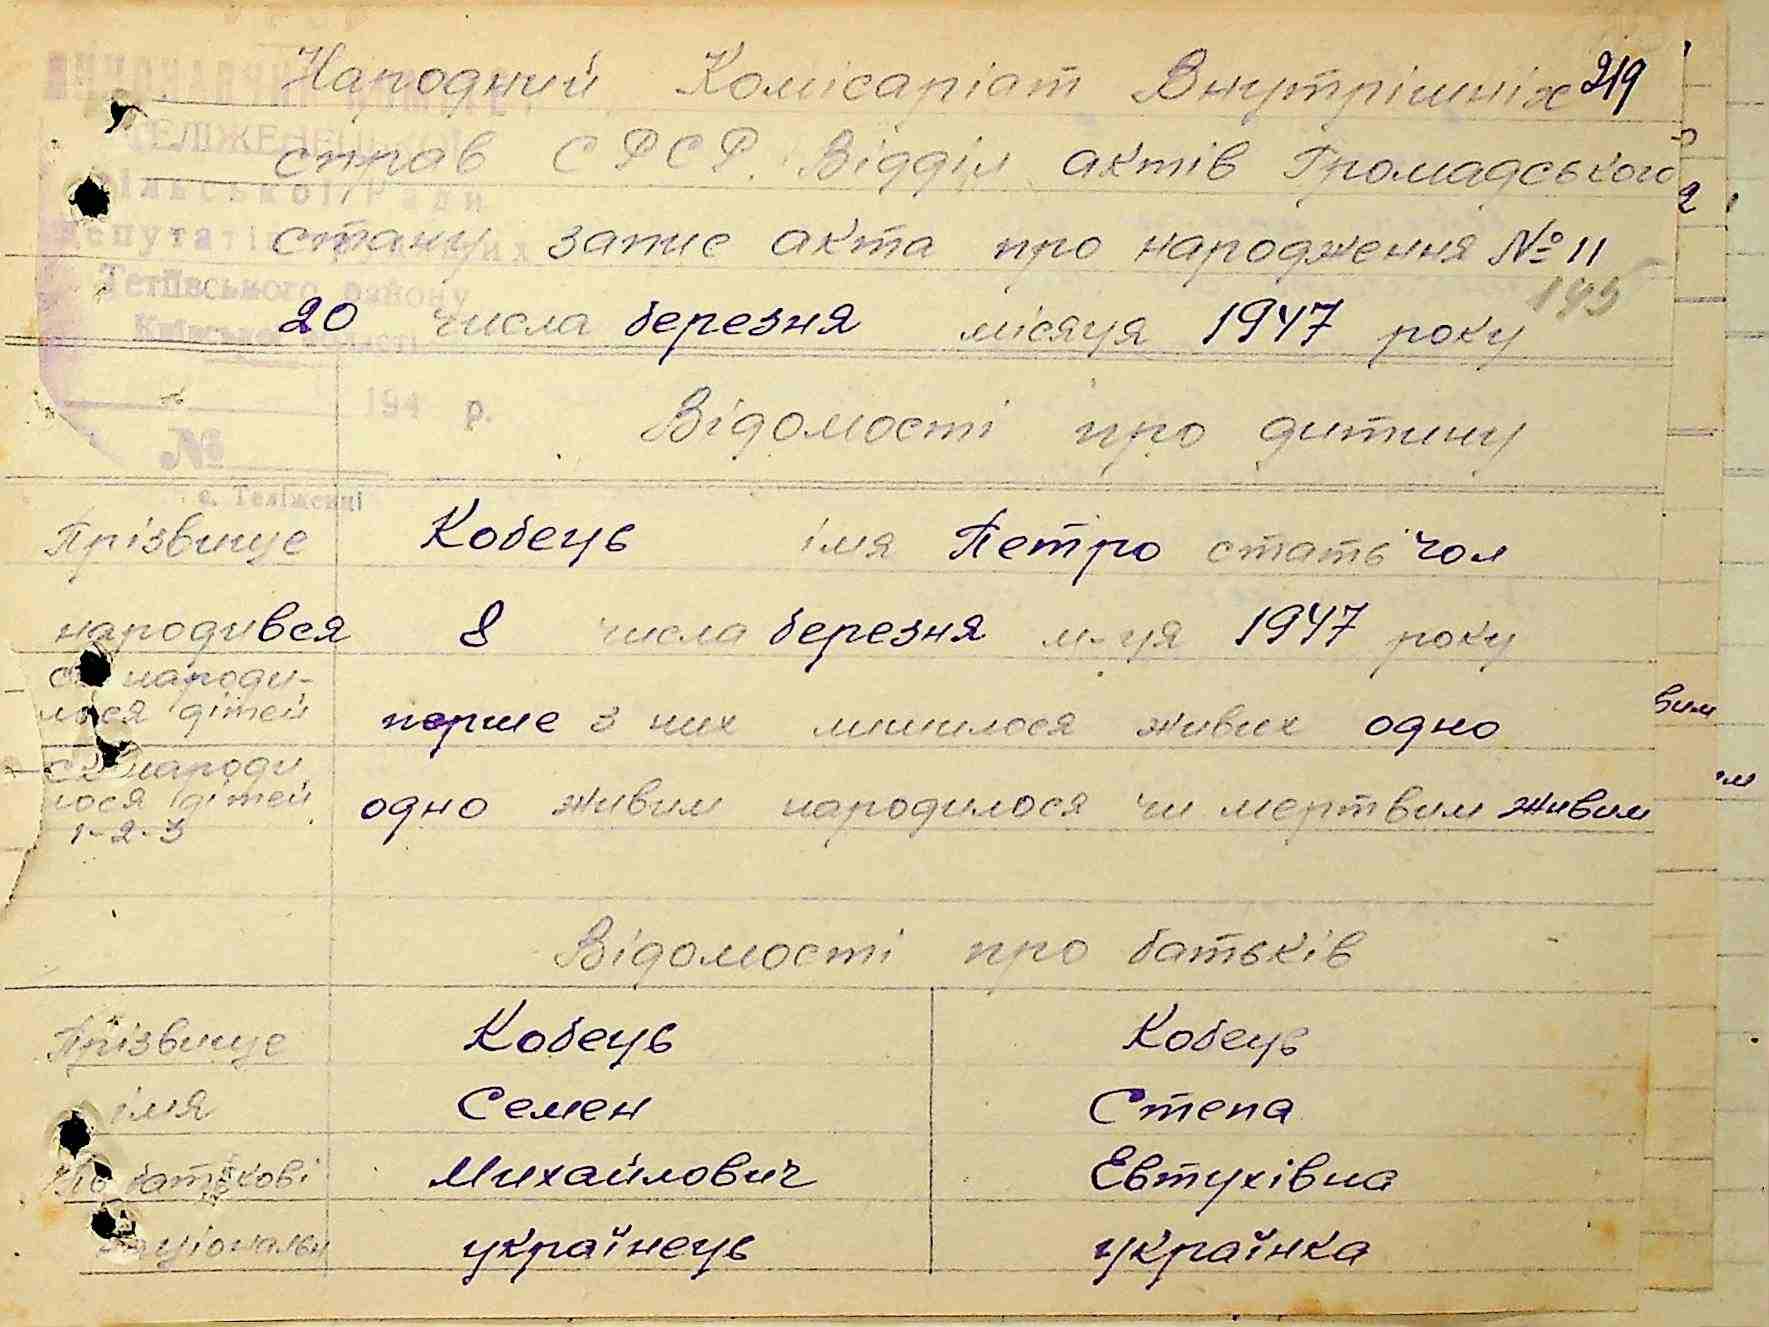 Народний Комісаріат Внутрішніх 219
справ СРСР. Відділ актів Громадського
стану запис акта про народження № 11
195
20 числа березня місяця 1947 року
194 р.
Відомості про дитину
№
с. Теліженці
Прізвище Кобець імя Петро стать чол
народився 8 числа березня м-ця 1947 року
народи-
лося дітей перше з них лишилося живих одно
народи
лося дітей одно живим народилося чи мертвим живим
1-2-3
Відомості про батьків
Прізвище Кобець Кобець
імя Семен Степа
По батькові Михайлович Евтухівна
національн українець українка